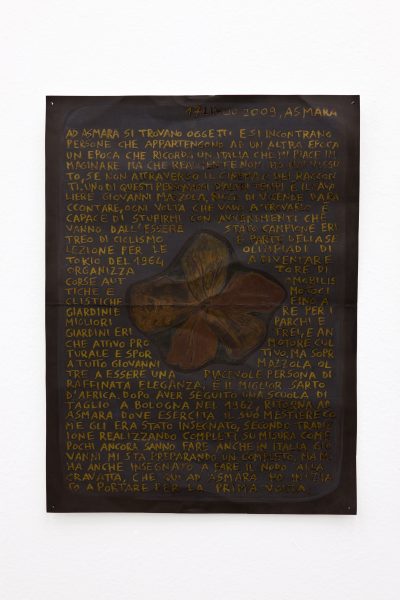 2009, ASMARA
AD ASMARA SI TROVANO OGGETTI E SI INCONTRANO
PERSONE CHE APPARTENGONO AD UN'ALTRA EPOCA
UN EPOCA CHE RICORDA UN ITALIA CHE MI PIACE IM
MAGINARE MA CHE REALMENTE NON HO CONOSCIU
TO, SE NON ATTRAVERSO IL CINEMA E DEI RACCON
TI. UNO DI QUESTI PERSONAGGI È IL CAVA
LIERE GIOVANNI MAZZOLA, DI VICENDE DA RA
CCONTARE, OGNI VOLTA CHE VADO A TROVARLO È
CAPACE DI STUPIRMI CON AVVENIMENTI CHE
VANNO DALL'ESSERE STATO CAMPIONE ERI
TREO DI CICLISMO E PARTE DELLA SE
LEZIONE PER LE OLIMPIADI DI
TOKIO DEL 1964 A DIVENTARE
ORGANIZZA TORE DI
CORSE AUT OMOBILIS
TICHE E MOTOCI
CLISTICHE FINO A
GIARDINIE RE PER I
MIGLIORI PARCHI E
GIARDINI ERI TREI, E AN
CHE ATTIVO PRO MOTORE CUL
TURALE E SPOR TIVO, MA SOPR
ATUTTO GIOVANNI MAZZOLA OL
TRE A ESSERE UNA PIACEVOLE PERSONA DI
RAFFINATA ELEGANZA, È IL MIGLIOR SARTO
D'AFRICA. DOPO AVER SEGUITO UNA SCUOLA DI
TAGLIO A BOLOGNA NEL 1962, RITORNA AD
ASMARA DOVE ESERCITA IL SUO MESTIERE CO
ME GLI ERA STATO INSEGNATO, SECONDO TRADIZ
IONE REALIZZANDO COMPLETI SU MISURA COME
POCHI ANCORA SANNO FARE ANCHE IN ITALIA. GIO
VANNI MI STA PREPARANDO UN COMPLETO, MA M
HA ANCHE INSEGNATO A FARE IL NODO ALLA
CRAVATTA, CHE QUI AD ASMARA HO INIZIA
TO A PORTARE PER LA PRIMA VOLTA.